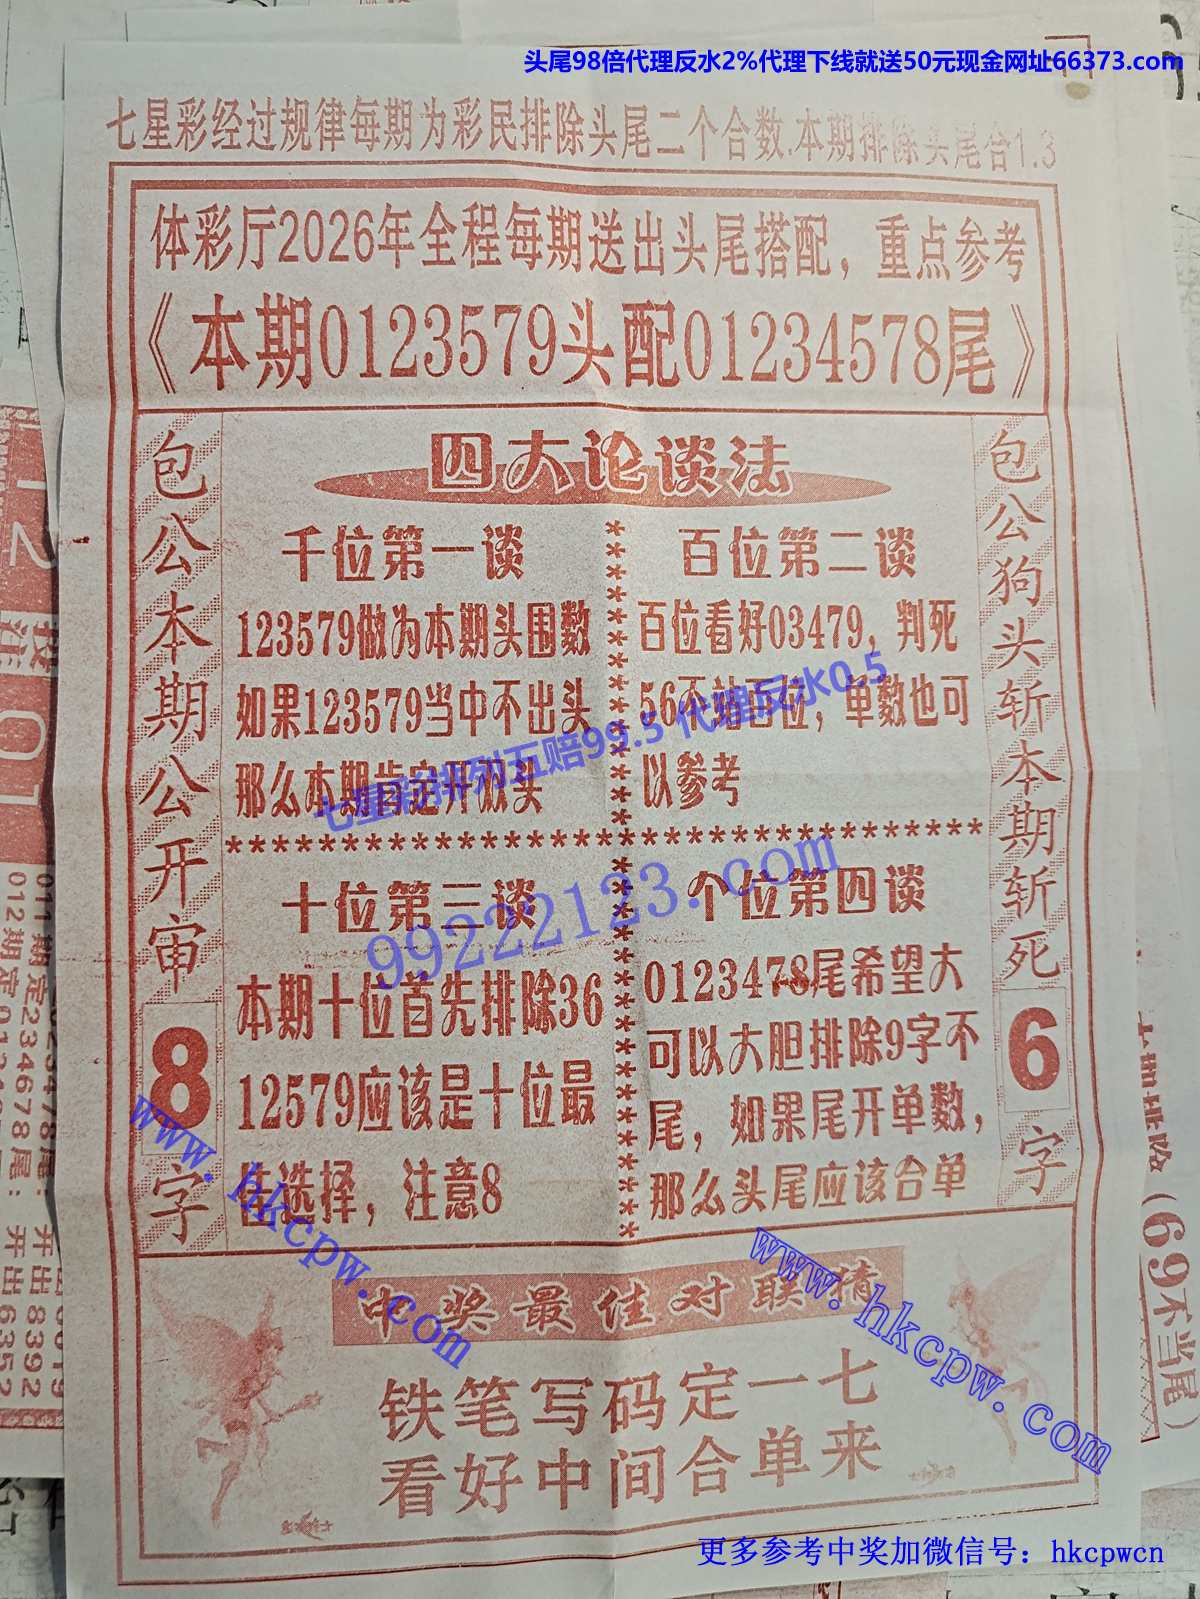 头尾98倍代理反水2%代理下线就送50元现金网址66373.com
七星彩经过规律每期为彩民排除头尾二个合数.本期排除头尾合1.3
体彩厅2026年全程每期送出头尾搭配，重点参考
《本期0123579头配01234578尾》
包公本期公开审8字
四大论谈法
千位第一谈
123579做为本期头围数
如果123579当中不出头
那么本期肯定开双头
百位第二谈
百位看好03479，判死
56不站百位，单数也可
以参考
七星彩排列五赔99.5 代理反水0.5
************************************
99222123.com
十位第三谈
本期十位首先排除36
12579应该是十位最
佳选择，注意8
个位第四谈
0123478尾希望大
可以大胆排除9字不
尾，如果尾开单数，
那么头尾应该合单
包公狗头斩本期斩死6字
www.hkcpw.com
www.hkcpw.com
中奖最佳对联猜
铁笔写码定一七
看好中间合单来
更多参考中奖加微信号：hkcpwcn
(69不当尾)